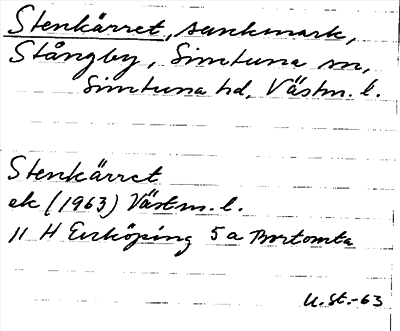 Stenkärret, sankmark,
Stångby, Simtuna sn,
Simtuna hd, Västm. l.
Stenkärret
ek (1963) Västm. l.
11 H Enköping 5 a Bortomta
U. St.-63